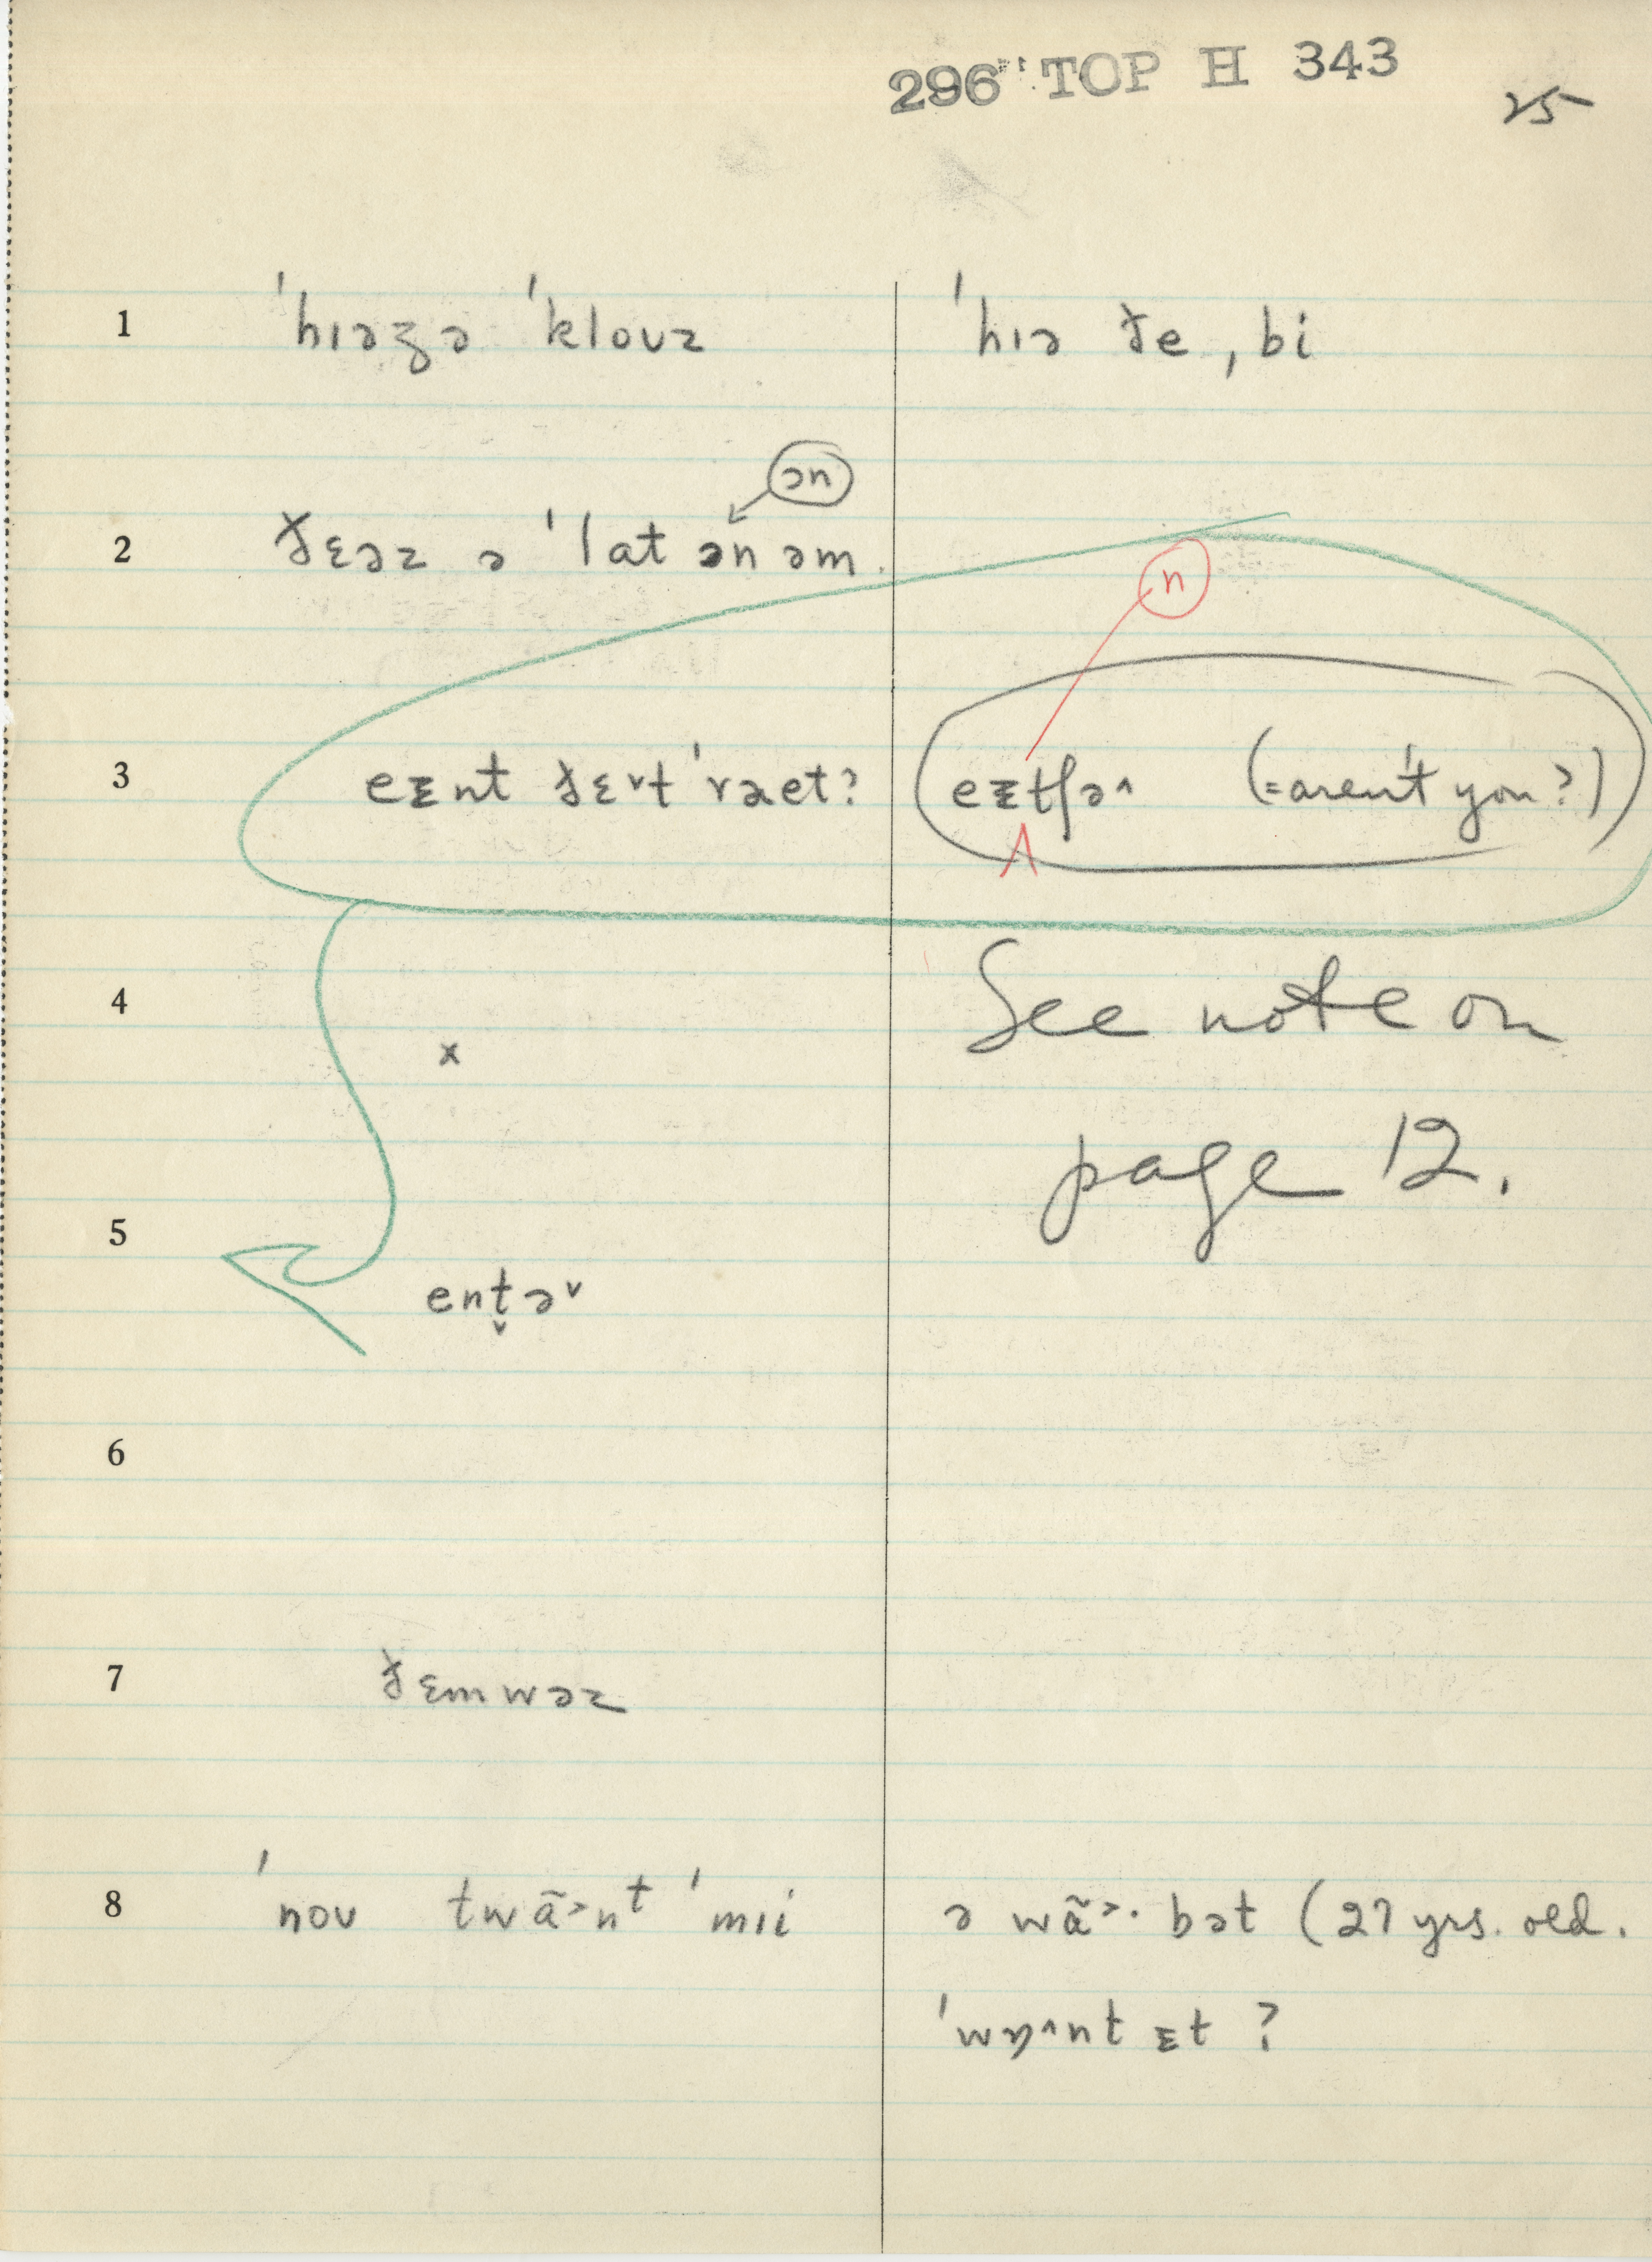 296 TOP H 343
25
1 ˈhɪəzə ˈkloʊz ˈhɪə ðe ˌbi
ən
2 ðɛəz ə ˈlat ən əm
n
3 eᵻnt ðɛ˅t ˈraet? eᵻtʃə˄ (=aren't you?)
4 See note on
x
page 12.
5 ent̬ə˅
6
7 ðɛmwəz
8 ˈnoʊ twã˃nt ˈmɪi ə wã˃· bət (27 yrs. old.